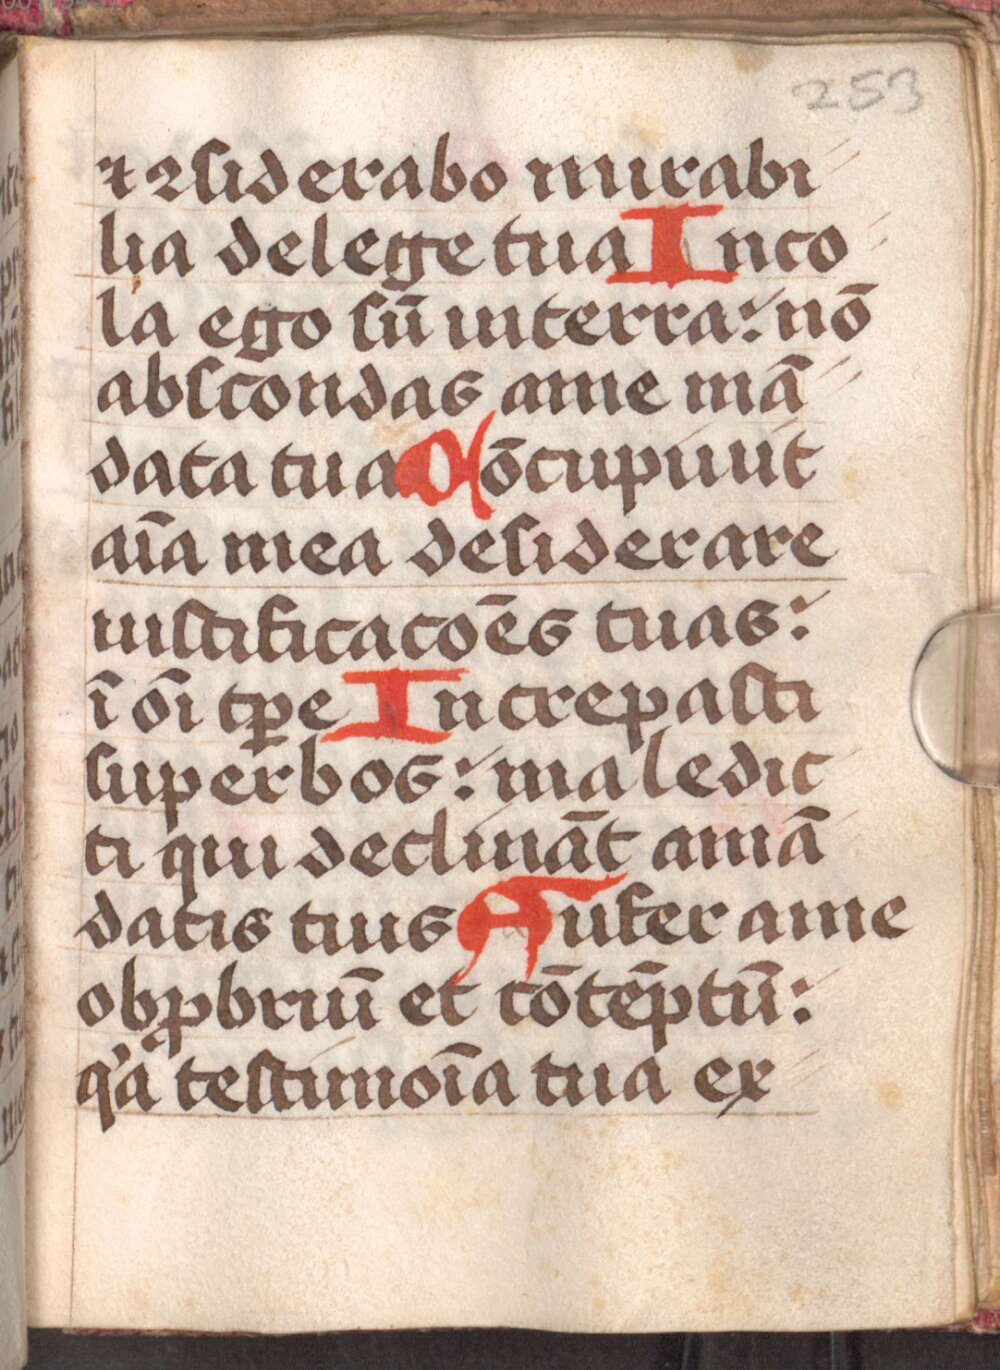 253
⁊ ꝯsiderabo mirabi
lia de lege tua Inco
la ego sū in terra: nō
abscondas a me mā
data tua Cōcupiuit
aīa mea desiderare
iustificacōēs tuas:
ī oī tꝑe Increpasti
superbos: maledic
ti qui declināt a mā
datis tuis Aufer a me
obꝓbriū et cōtēptū:
q'a testimoīa tua ex